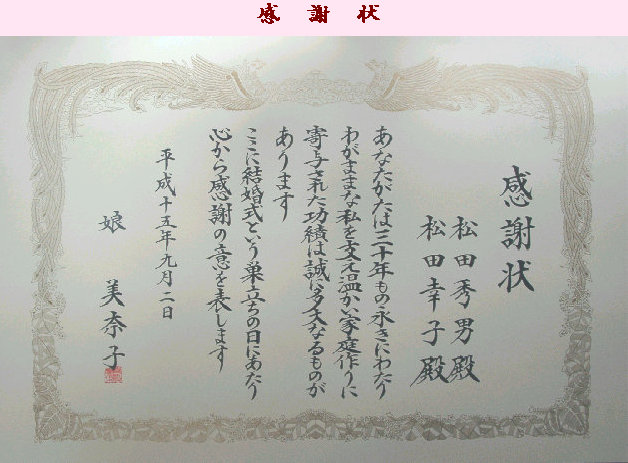 感謝状
感謝状
松田秀男殿
松田幸子殿
あなたがたは三十年もの永きにわたり
わがままな私を支え温かい家庭作りに
寄与された功績は誠に多大なるものが
あります
ここに結婚式という巣立ちの日にあたり
心から感謝の意を表します
平成十五年九月二日
娘 美奈子